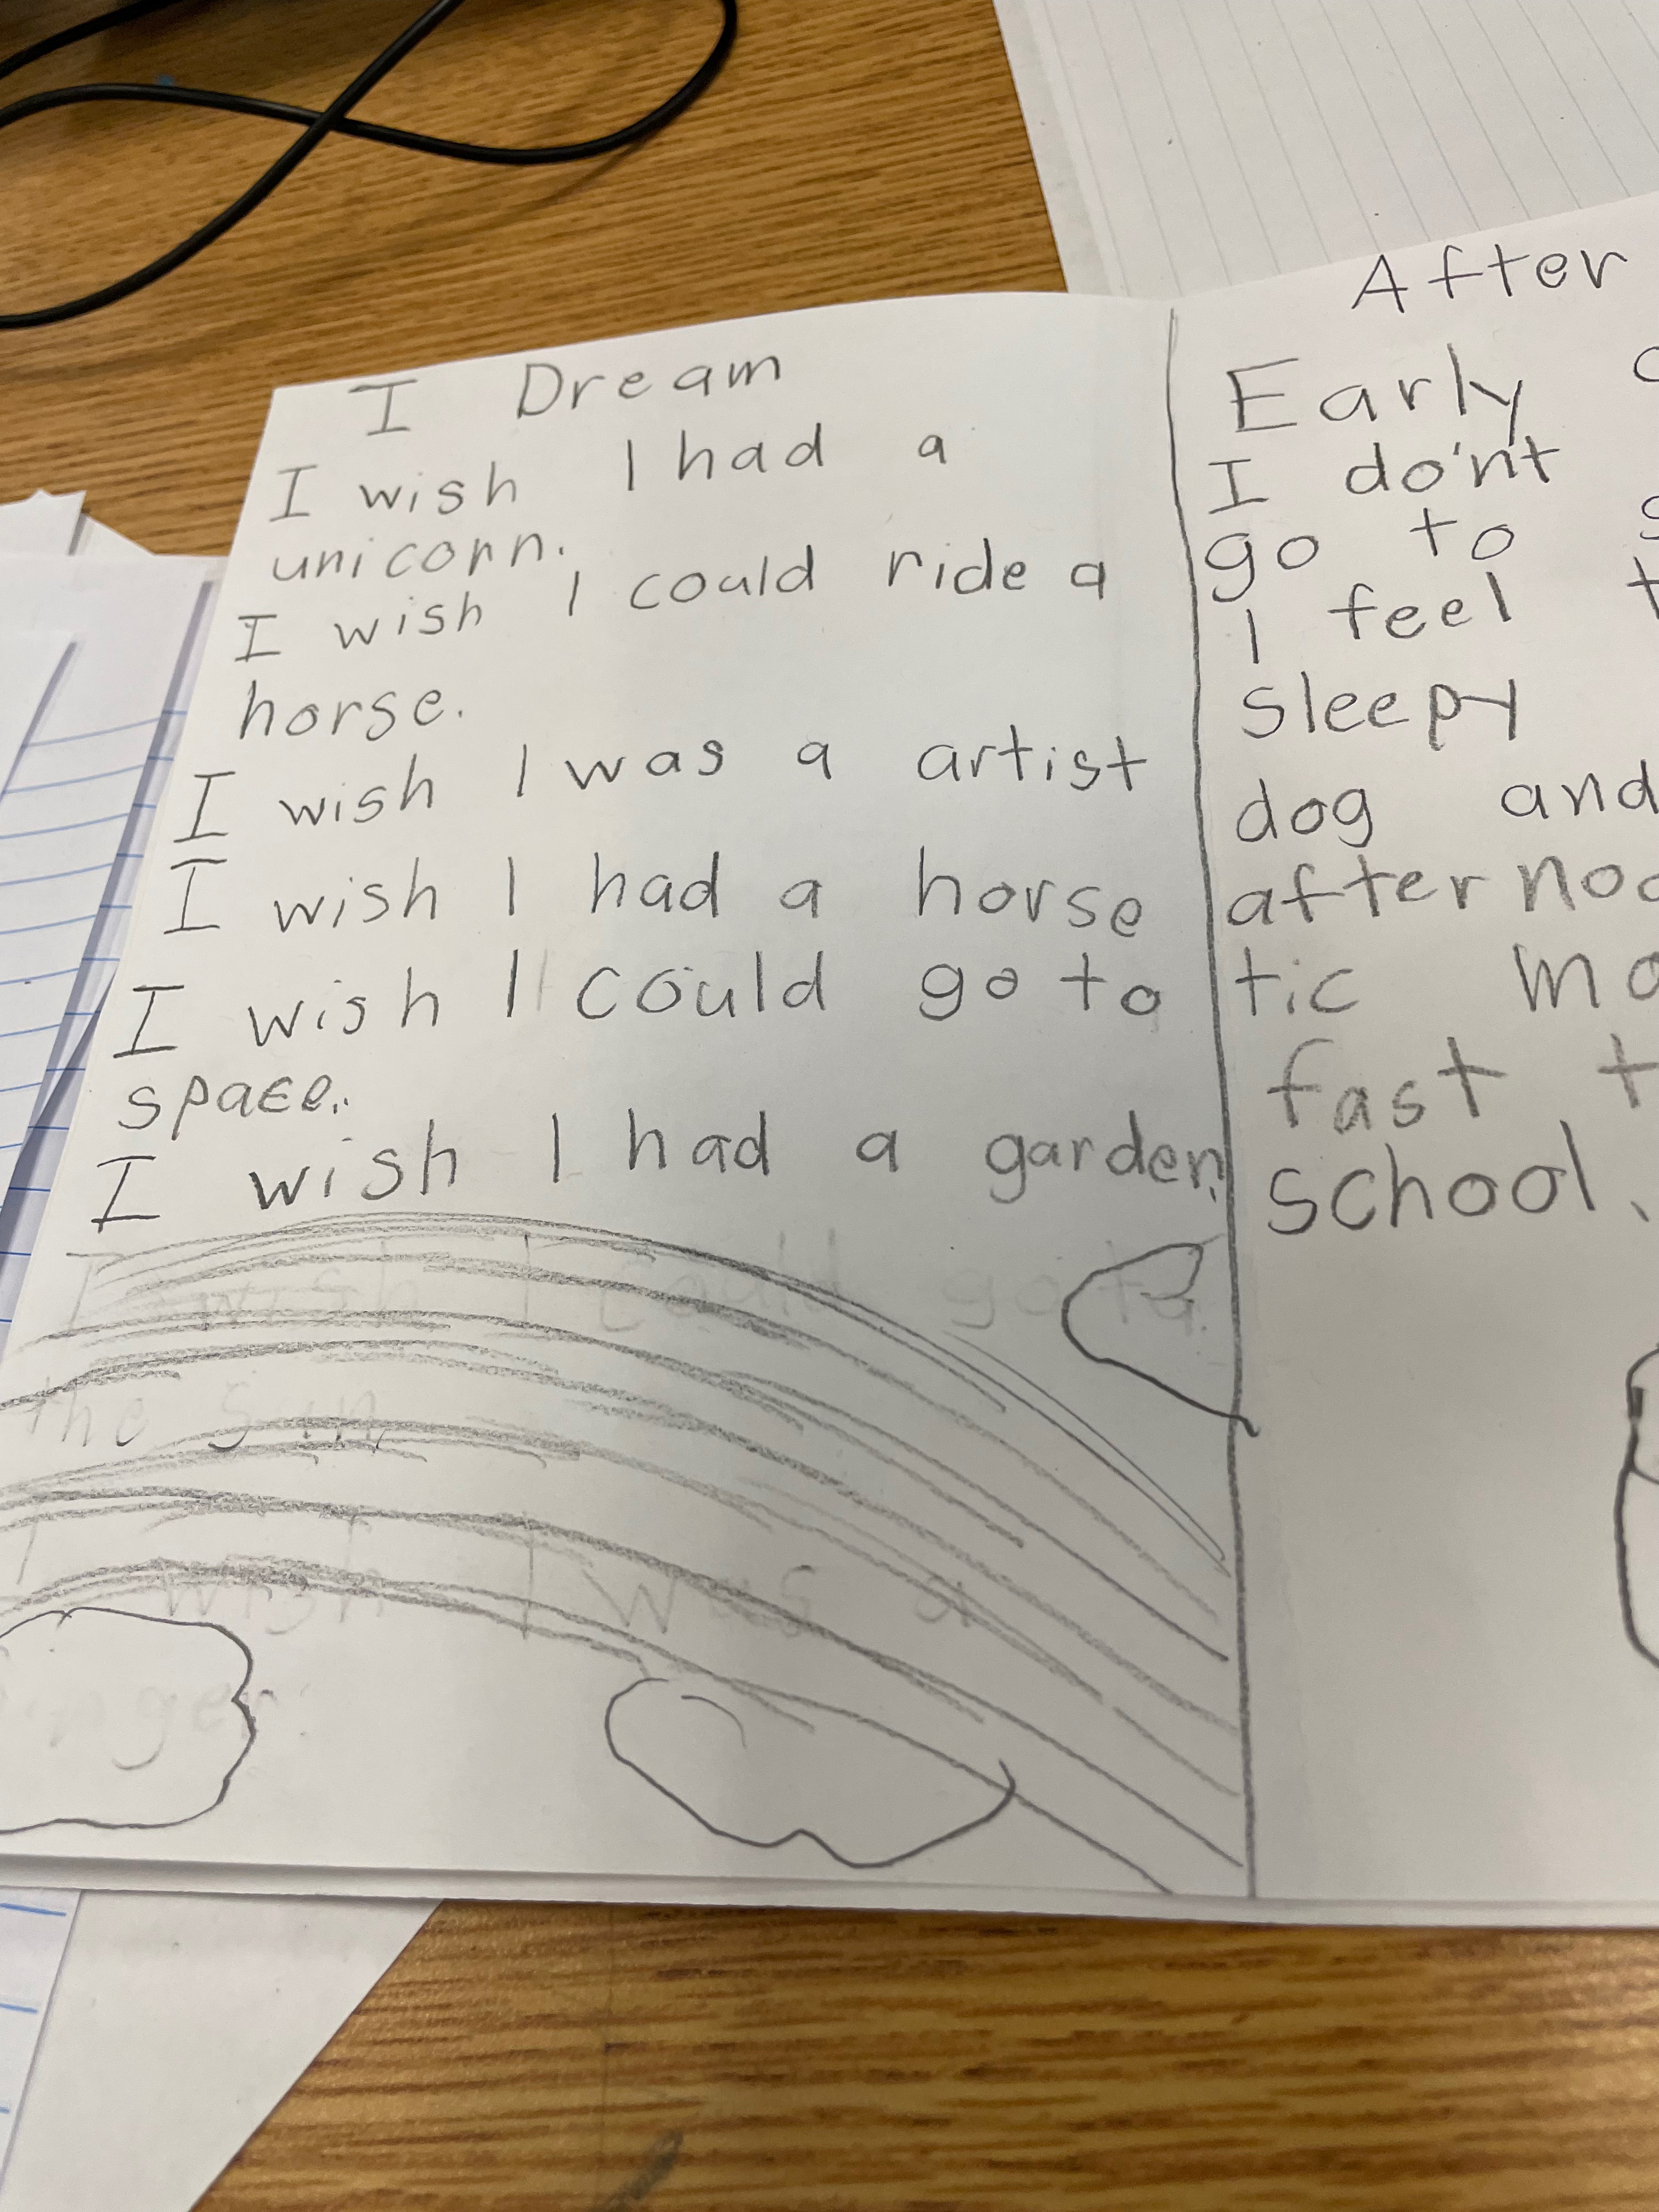 I Dream
I wish I had a
unicorn.
I wish I could ride a
horse.
I wish I was a artist
I wish I had a horse
I wish I could go to
space.
I wish I had a garden.
I wish I could go to
the sun.
I wish I was a
After
Early
I do'nt
go to
I feel
sleepy
dog and
tic
fast
school.